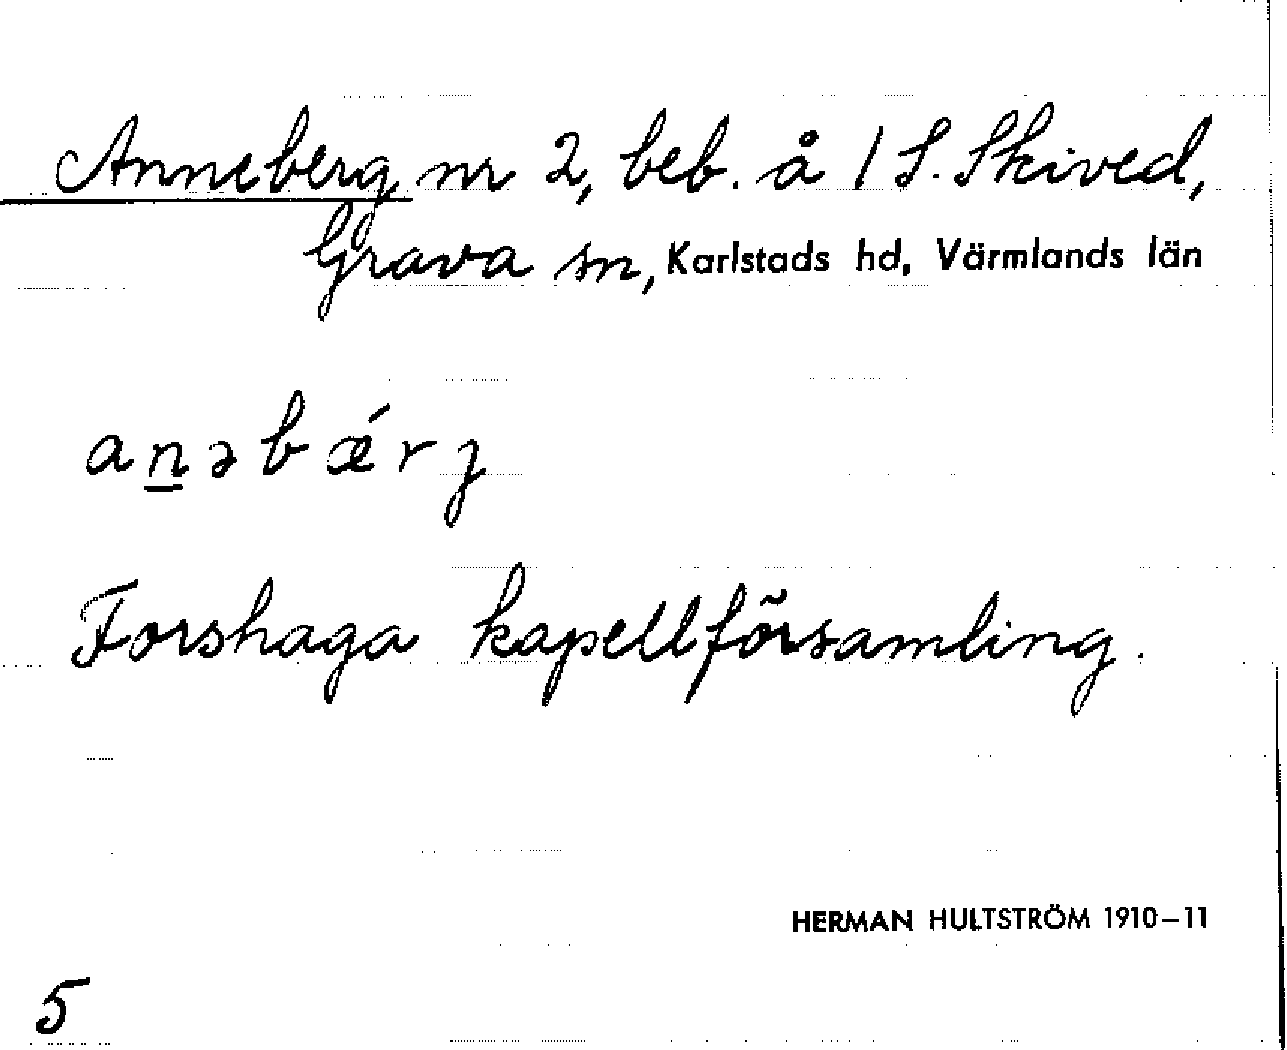 Anneberg nr 2, beb. å / S. Skived,
Grava sn, Karlstads hd, Värmlands län
an̲əbǽrȷ
Forshaga kapellförsamling.
HERMAN HULTSTRÖM 1910–11
5